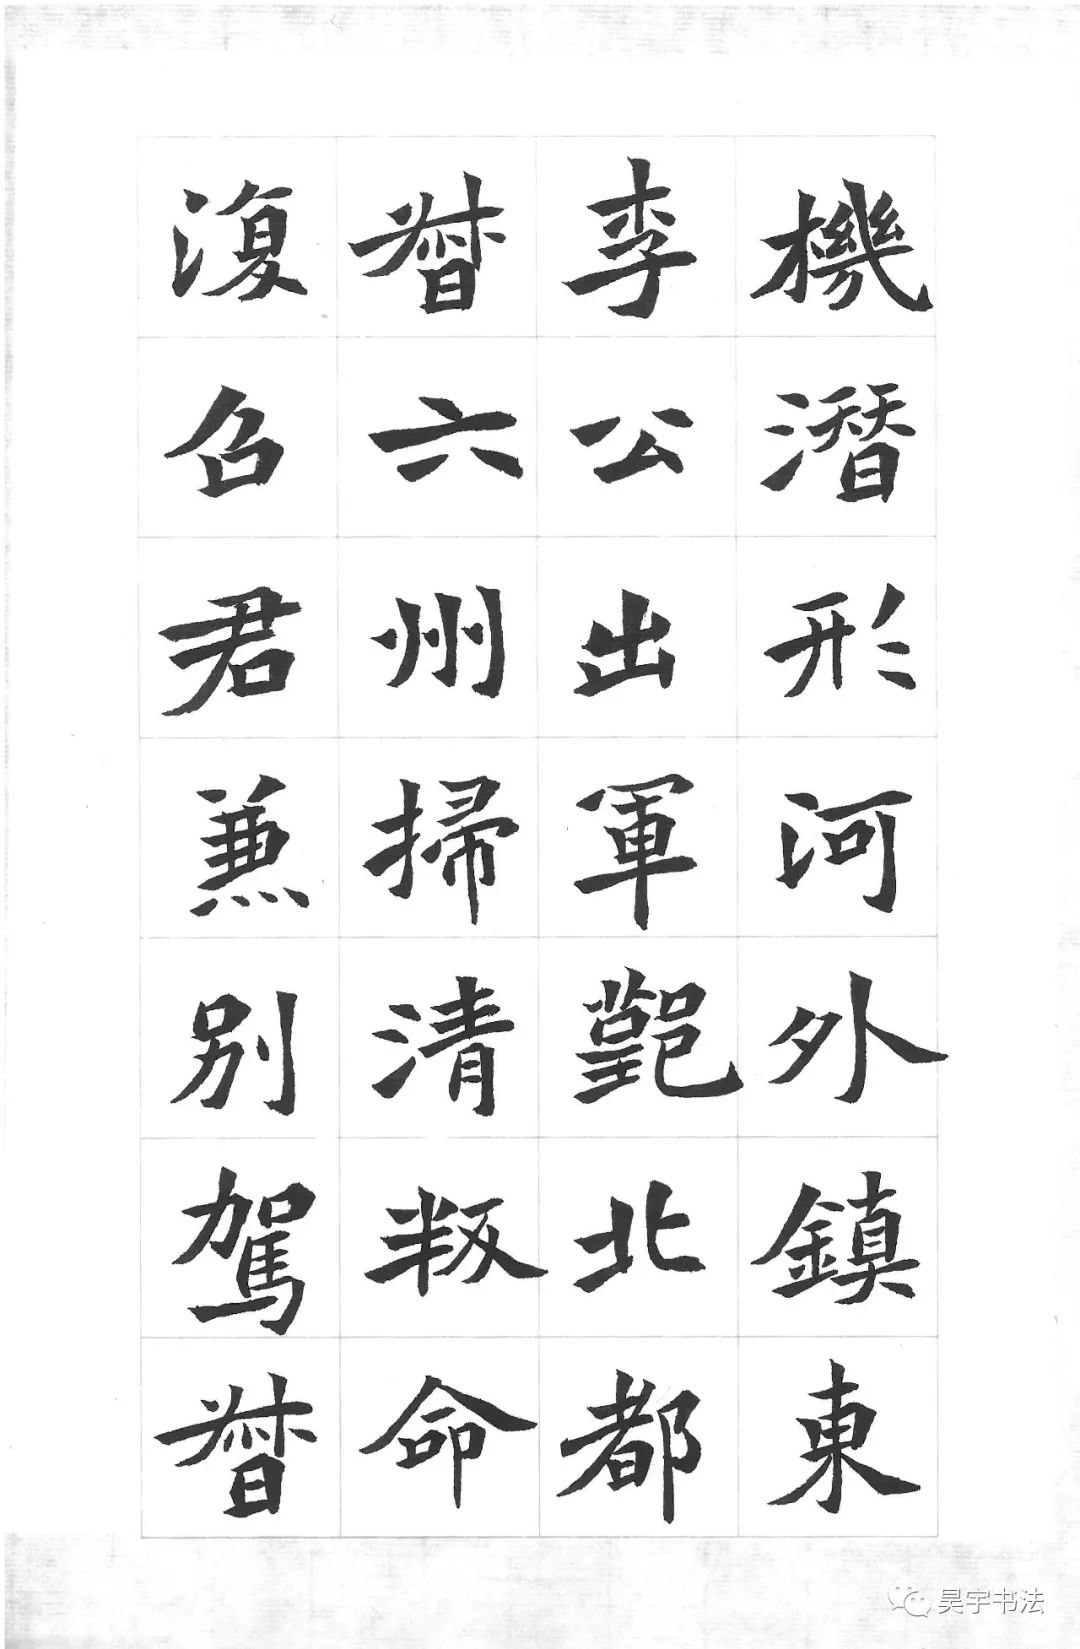 機潛形河外鎮東
李公出軍北都
督六州掃清叛命
復召君兼別駕督
昊宇书法